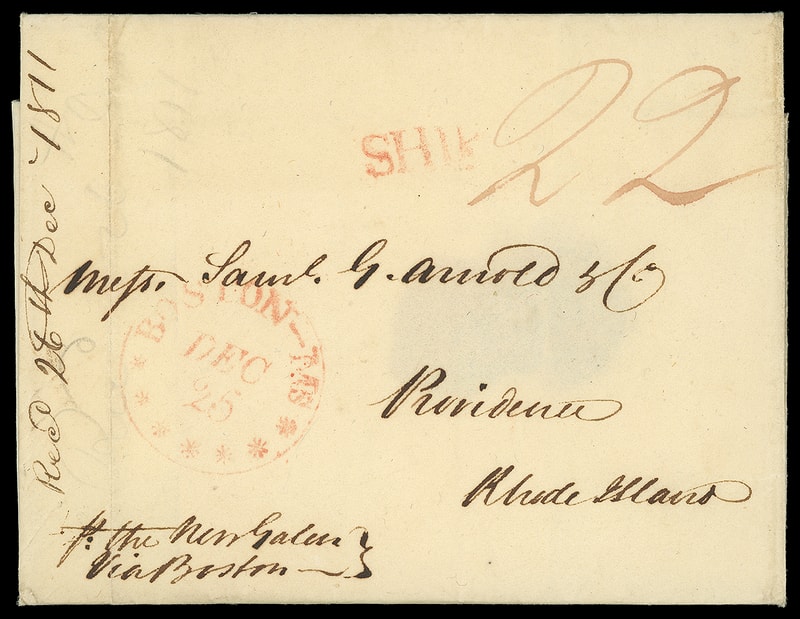 Recd 26th Dec 1811
SHIP
22
Messs. Saml. G. Arnold & Co
BOSTON-MS
DEC
25
Providence
Rhode Island
pr the New Galen
Via Boston